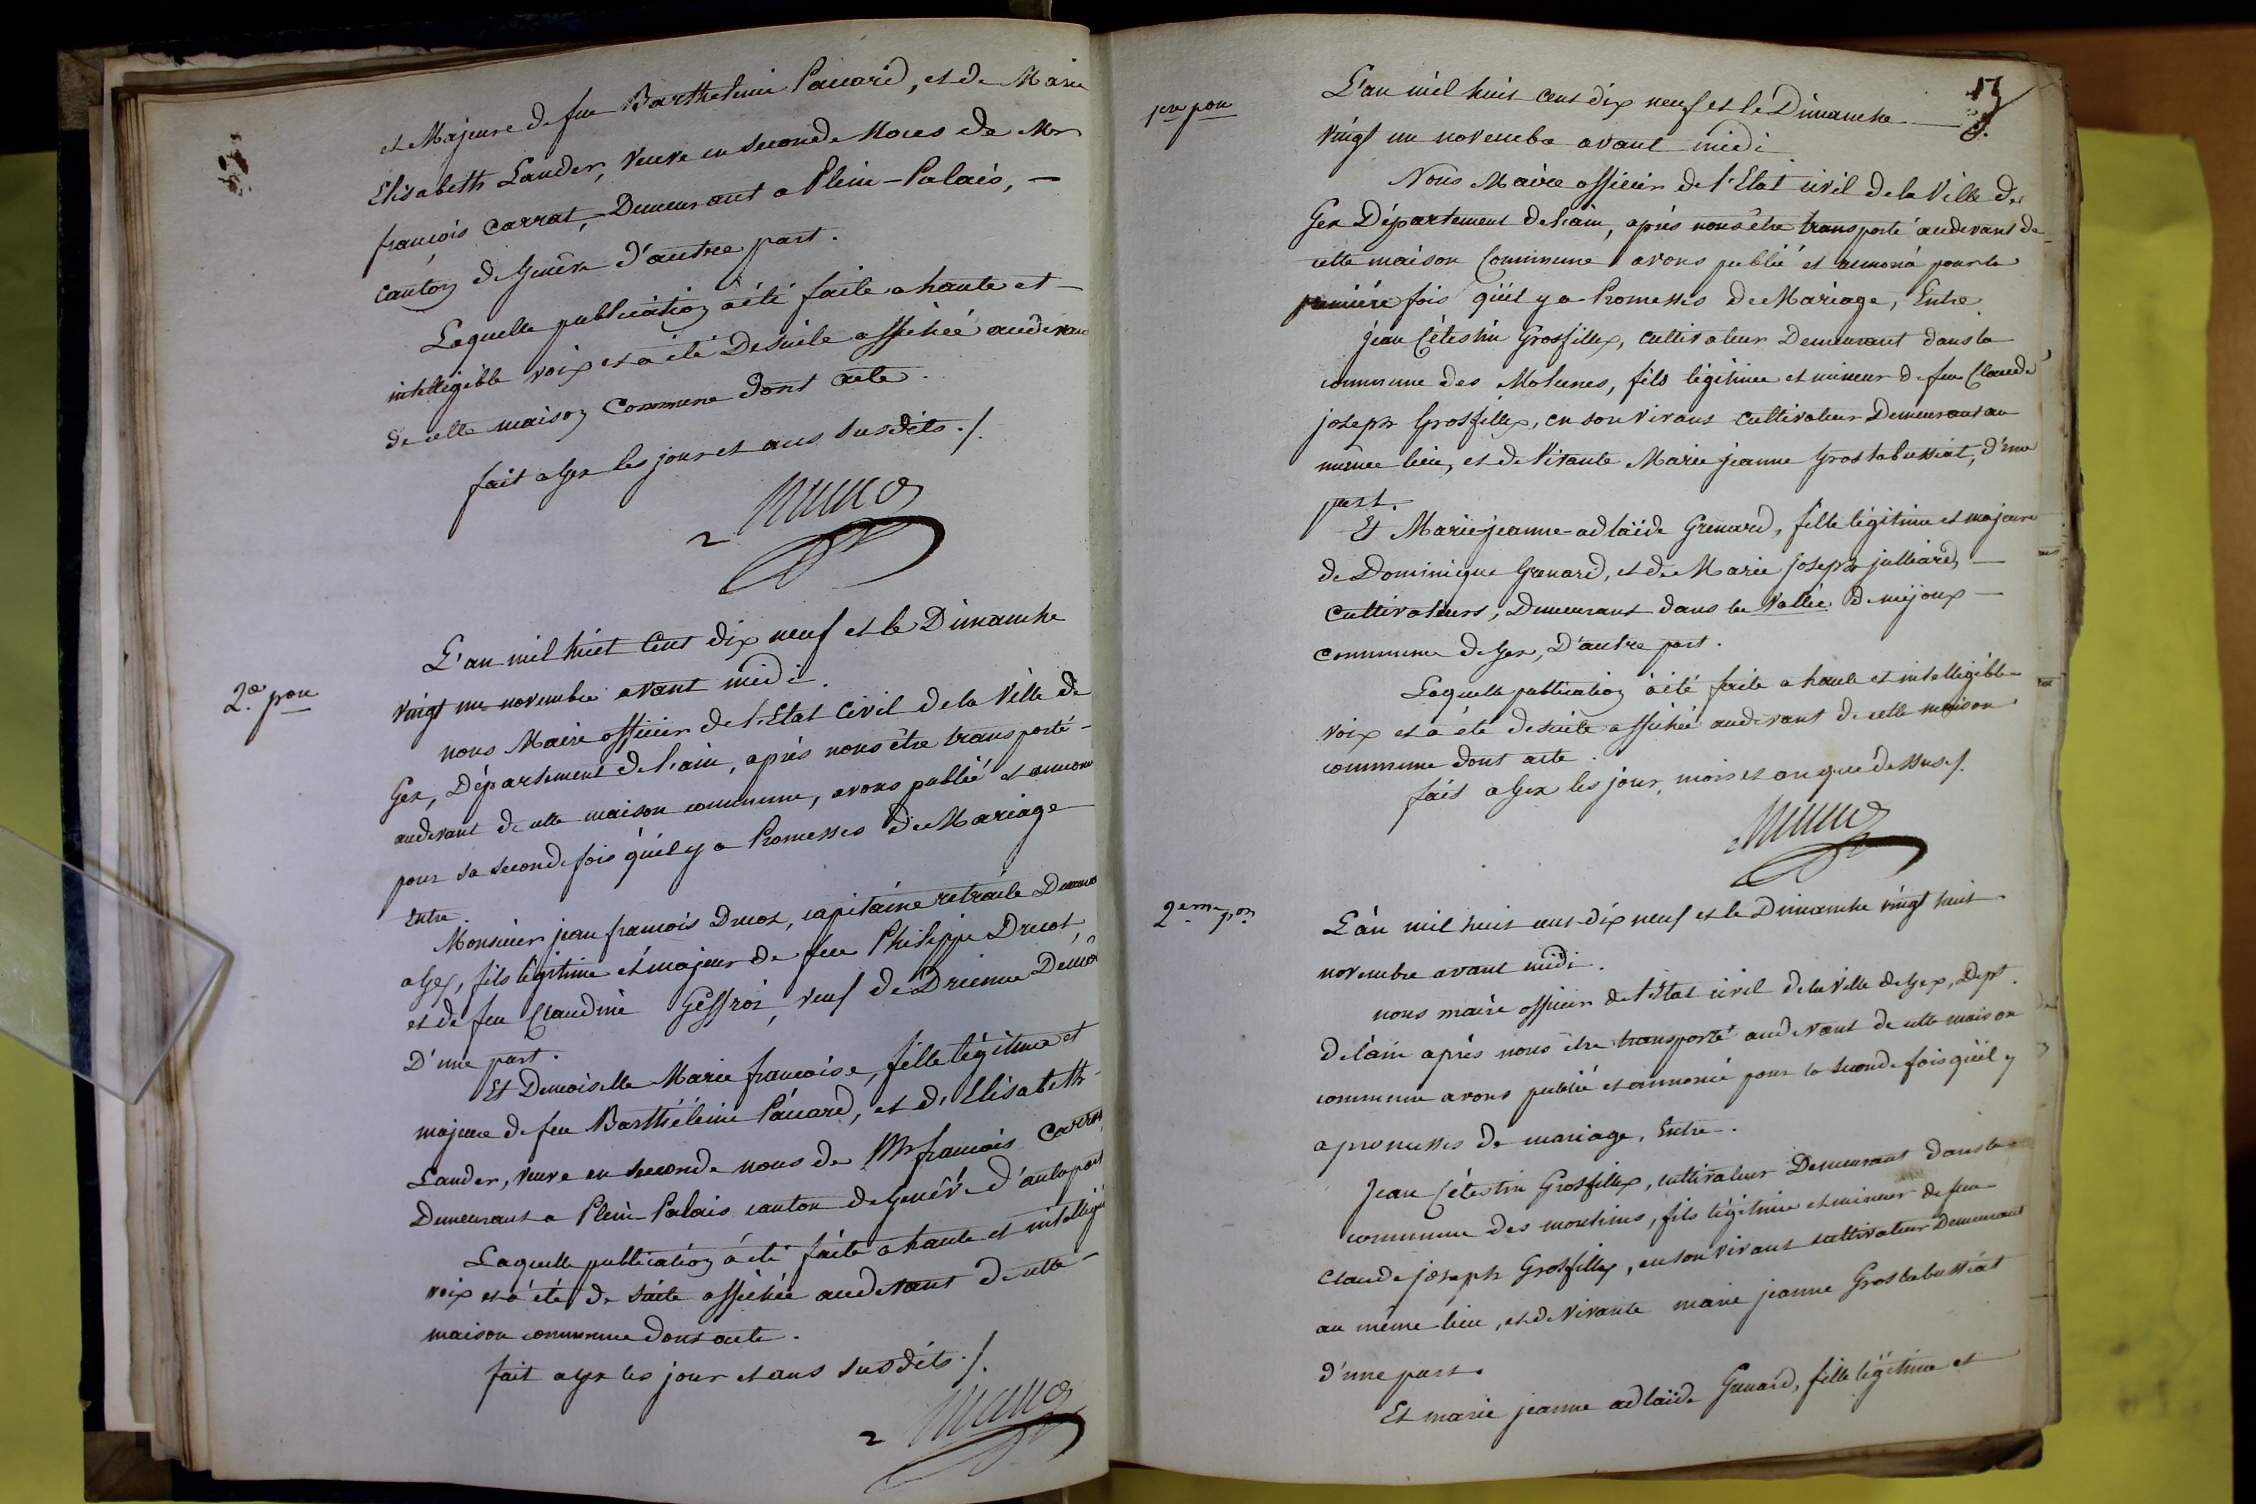 et Majeure de feu Barthelemie Pauard, et de Marie
Elisabeth Lander, veuve en seconde Noces de Mr
françois Carrat, Demeurant a Plein-Palais, —
canton de Genêve d'autre part.
Laquelle publication à été faite a haute et —
intelligible voix et a été Desuite affichée audevant
de cette maison Commune dont acte.
fait a Gex les jour et ans susdits ./.
2ᵉ pon
L'an mil huit Cent dix neuf et le Dimanche
vingt un novembre avant midi.
nous Maire officier de l'Etat Civil de la Ville de
Gex, Département de l'ain, après nous être transporté -
audevant de cette maison commune, avons publié et annoncé
pour la seconde fois qu'il y a Promesses de Mariage
Entre.
Monsieur jean francois Ducot, capitaine retraité Demeurant
a Gex, fils légitime et majeur de feu Philippe Ducot,
et de feu Claudine Geffroi, veuf de Drienne
D'une part.
Et Demoiselle Marie francoise, fille légitime et
majeure de feu Barthélémie Pauard, et d'Elisabeth
Lander, veuve en seconde nous de Mr francois Carrat
Demeurant a Plein-Palais canton de Genêve d'autre part
Laquelle publication à été faite a haute et intelligi
voix et a été de suite affichée audevant de cette -
maison commune dont acte.
fait a Gex les jour et ans susdits ./.
17
1re pon
L'an mil huit cent dix neuf et le Dimanche —
vingt un novembre avant midi
Nous Maire officier de l'Etat civil de la Ville de
Gex Département de l'ain, après nous être transporté audevant de
cette maison Commune avons publié et annoncé pour la
première fois qu'il y a Promesses de Mariage, Entre.
jean Célestin Grosfillex, cultivateur Demeurant dans la
commune des Molunes, fils légitime et mineur de feu Claude
joseph Grosfillex, en son vivant cultivateur Demeurant au
même lieu, et de vivante Marie jeanne Grostabussiat, d'une
part.
Et Marie jeanne-adlaïde Grenard, fille légitime et majeure
de Dominique Grenard, et de Marie joseph julliard, —
cultivateurs, Demeurant dans la Vallée de mijoux —
commune de Gex, D'autre part.
Laquelle publication à été faite a haute et intelligible
voix et a été desuite affichée audevant de cette maison
commune dont acte.
fait a Gex les jour, mois et an que dessus ./.
2eme pon
L'an mil huit cent dix neuf et le Dimanche vingt huit
novembre avant midi.
nous maire officier de l'Etat civil de la ville de Gex, Dept.
de l'ain après nous être transporté audevant de cette maison
commune avons publié et annoncé pour la seconde fois qu'il y
a promesses de mariage, Entre.
Jean Célestin Grosfillex, cultivateur Demeurant dans la
commune des moulines, fils légitime et mineur de feu
Claude joseph Grosfillex, en son vivant cultivateur Demeurant
au même lieu, et de vivante marie jeanne Grostabussiat
d'une part.
Et marie jeanne adlaïde Grenard, fille légitime et